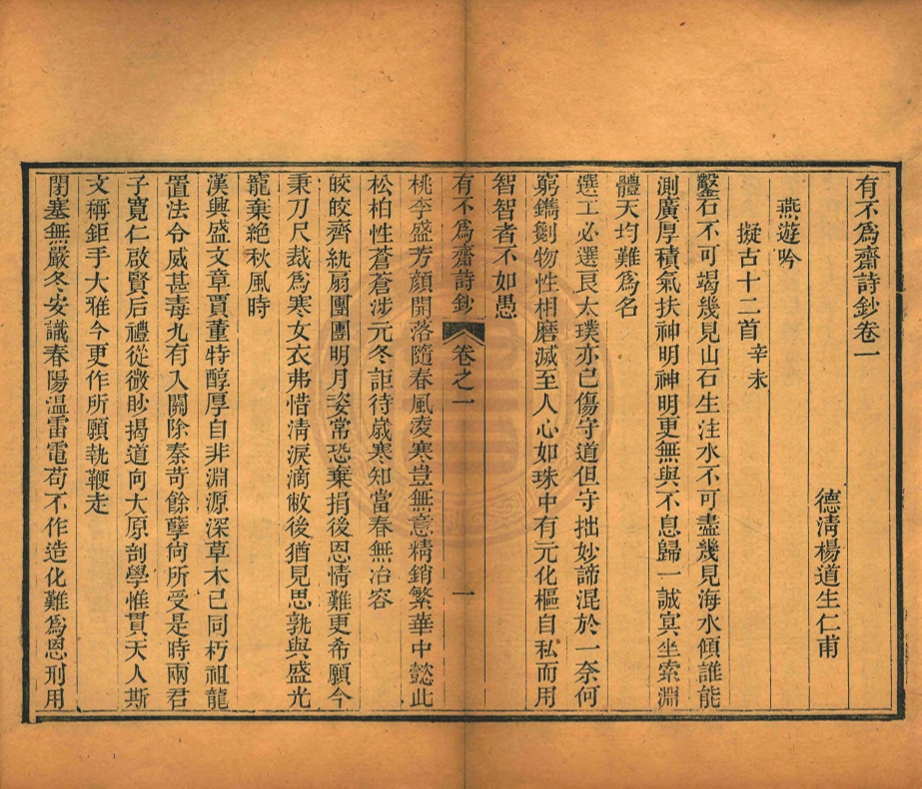 有不爲齋詩鈔卷一
德淸楊道生仁甫
燕遊吟
擬古十二首辛未
鑿石不可竭幾見山石生注水不可盡幾見海水傾誰能
測廣厚積氣扶神明神明更無與不息歸一誠冥坐索淵
體天均難爲名
選工必選良太璞亦已傷守道但守拙妙諦混於一奈何
窮鐫劖物性相磨滅至人心如珠中有元化樞自私而用
智智者不如愚
有不爲齋詩鈔 卷之一 一
桃李盛芳顔開落隨春風凌寒豈無意精銷繁華中懿此
松柏性蒼蒼涉元冬詎待歲寒知當春無冶容
皎皎齊紈扇團團明月姿常恐棄捐後恩情難更希願今
秉刀尺裁爲寒女衣弗惜淸淚滴敝後猶見思孰與盛光
寵棄絕秋風時
漢興盛文章賈董特醇厚自非淵源深草木已同朽祖龍
置法令威甚毒九有入關除秦苛餘孽尙所受是時兩君
子寬仁啟賢后禮從微眇揭道向大原剖學惟貫天人斯
文稱鉅手大雅今更作所願執鞭走
閉塞無嚴冬安識春陽温雷電苟不作造化難爲恩刑用